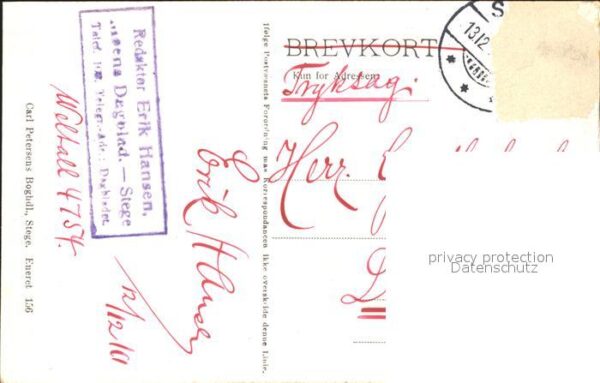 Redaktør Erik Hansen,
Møens Dagblad. — Stege
Telef. 100. Telegr.-Adr.: Dagbladet
Weltall 4754.
Carl Petersens Boghdl., Stege. Eneret 156
Erik Hansen
12/12 61
Ifølge Postvæsenets Forordning maa Korrespondancen ikke overskride denne Linie.
BREVKORT
Kun for Adressen.
Tryksag.
Herr
S
13.12
privacy protection
Datenschutz